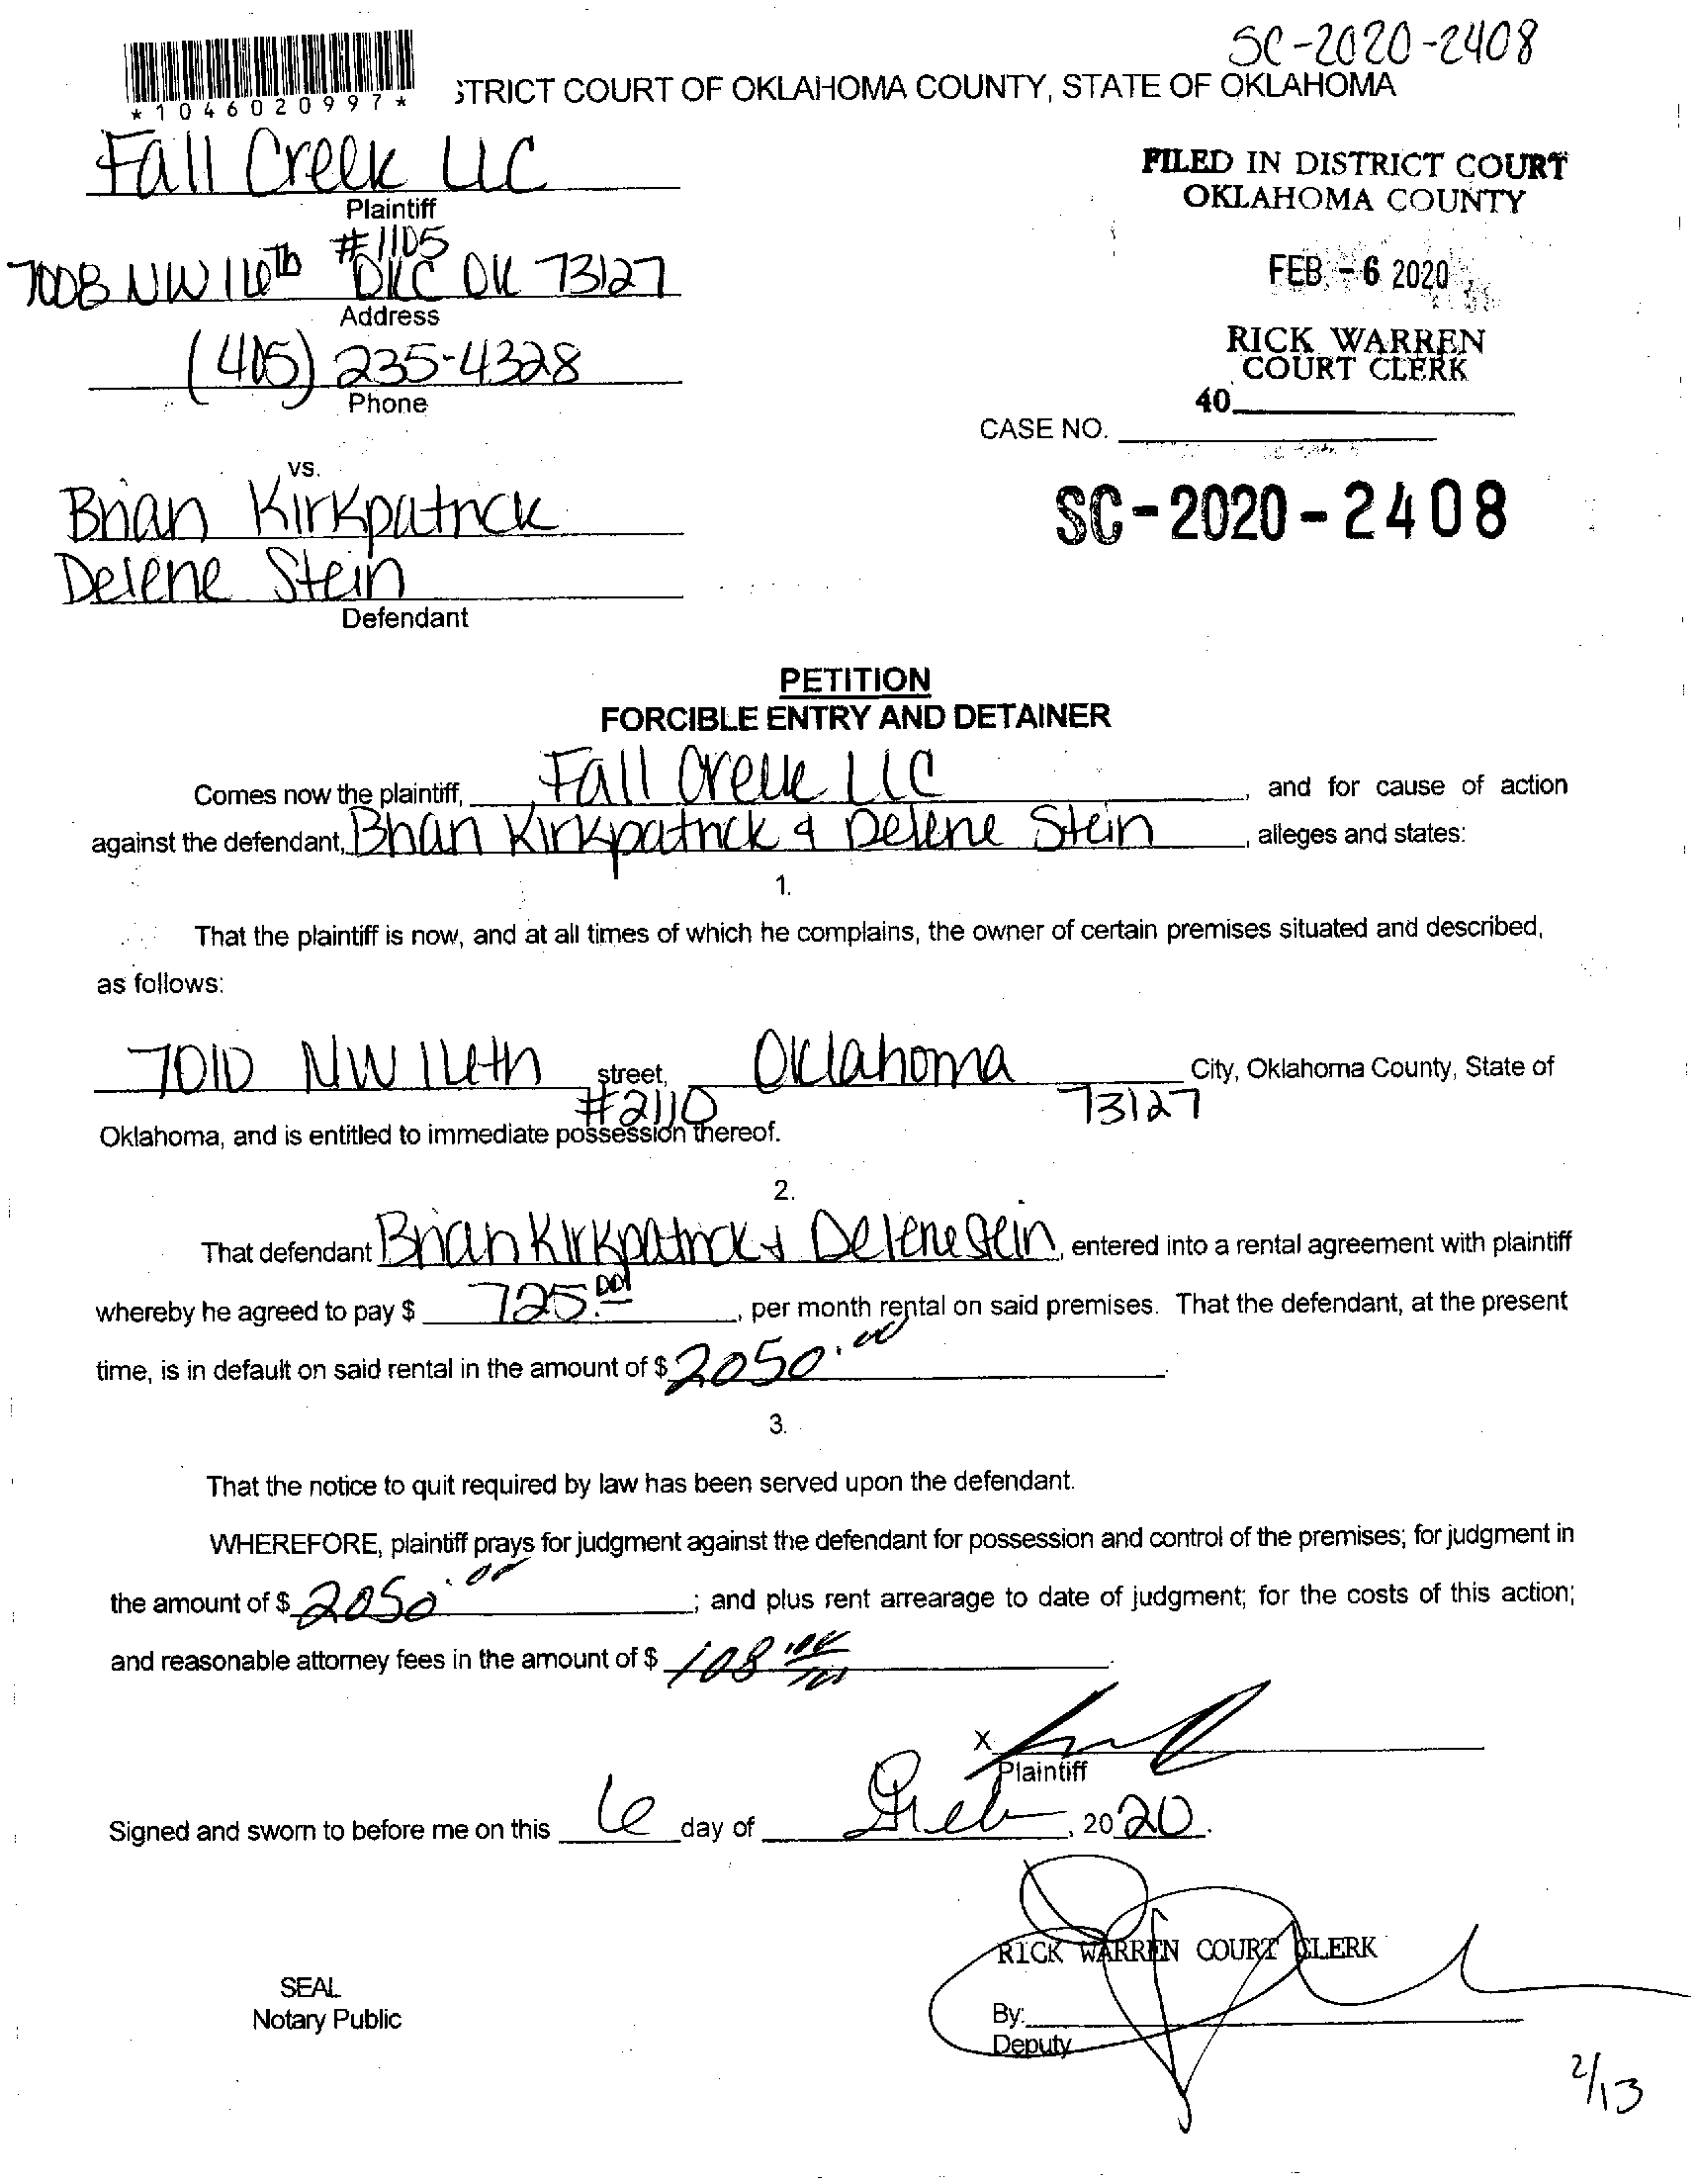 SC-2020-2408
STRICT COURT OF OKLAHOMA COUNTY, STATE OF OKLAHOMA
*1046020997*
Fall Creek LLC
Plaintiff
FILED IN DISTRICT COURT
OKLAHOMA COUNTY
#1105
7008 NW 16th OKC OK 73127
Address
FEB -6 2020
(405) 235-4328
Phone
RICK WARREN
COURT CLERK
40
CASE NO.
vs.
Brian Kirkpatrick
SC-2020-2408
Delene Stein
Defendant
PETITION
FORCIBLE ENTRY AND DETAINER
Comes now the plaintiff, Fall Creek LLC, and for cause of action
against the defendant, Brian Kirkpatrick & Delene Stein, alleges and states:
1.
That the plaintiff is now, and at all times of which he complains, the owner of certain premises situated and described,
as follows:
7010 NW 16th street, Oklahoma City, Oklahoma County, State of
#2110 73127
Oklahoma, and is entitled to immediate possession thereof.
2.
That defendant Brian Kirkpatrick & Delene Stein, entered into a rental agreement with plaintiff
whereby he agreed to pay $ 725.00, per month rental on said premises. That the defendant, at the present
time, is in default on said rental in the amount of $ 2050.00.
3.
That the notice to quit required by law has been served upon the defendant.
WHEREFORE, plaintiff prays for judgment against the defendant for possession and control of the premises; for judgment in
the amount of $ 2050.00; and plus rent arrearage to date of judgment; for the costs of this action;
and reasonable attorney fees in the amount of $ 108.
X
Plaintiff
Signed and sworn to before me on this 6 day of Feb, 2020.
RICK WARREN COURT CLERK
SEAL
Notary Public
By:
Deputy
2/13